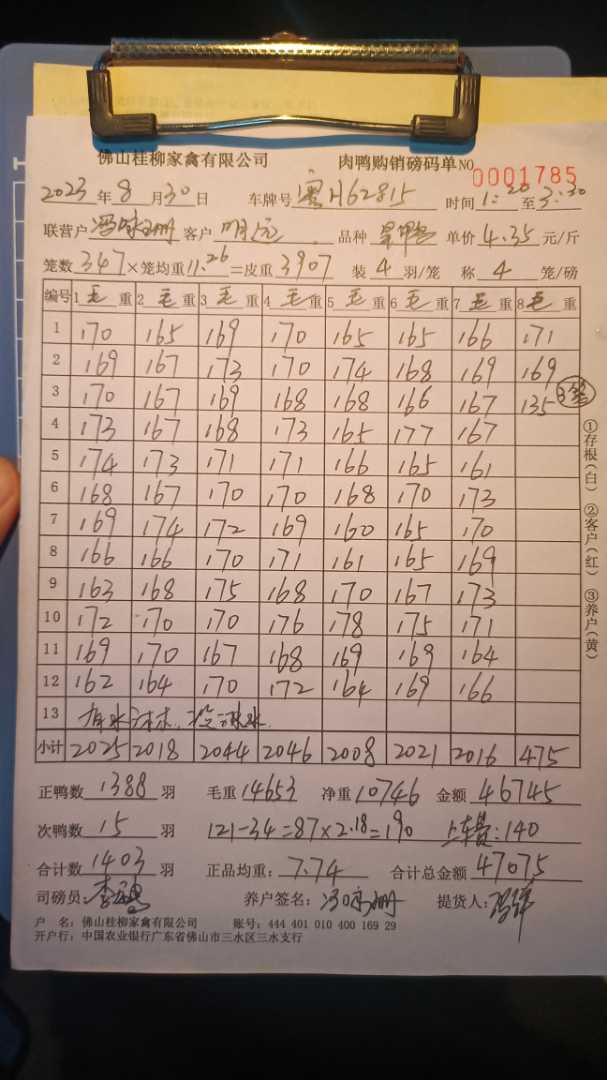 佛山桂柳家禽有限公司 肉鸭购销磅码单 NO 0001785
2023 年 8 月 30 日 车牌号 粤H62815 时间 1:20 至 3:30
联营户 冯 册 客户 明远 品种 单价 4.35 元/斤
笼数 347 ×笼均重 11.26 =皮重 3907 装 4 羽/笼 称 4 笼/磅
编号 1 毛 重 2 毛 重 3 毛 重 4 毛 重 5 毛 重 6 毛 重 7 毛 重 8 毛 重
1 170 165 169 170 165 165 166 171
2 169 167 173 170 174 168 169 169
3 170 167 169 168 168 166 167 135 3笼
4 173 167 168 173 165 177 167
5 174 173 171 171 166 165 161
6 168 167 170 170 168 170 173
7 169 174 172 169 160 165 170
8 166 166 170 171 161 165 169
9 163 168 175 168 170 167 173
10 172 170 170 176 178 175 171
11 169 170 167 168 169 169 164
12 162 164 170 172 164 169 166
13 有水沐沐，没淋水
小计 2025 2018 2044 2046 2008 2021 2016 475
正鸭数 1388 羽 毛重 14653 净重 10746 金额 46745
次鸭数 15 羽 121-34=87×2.18=190 上车费:140
合计数 1403 羽 正品均重: 7.74 合计总金额 47075
司磅员: 李 养户签名: 冯 册 提货人: 冯
户 名: 佛山桂柳家禽有限公司 账号: 444 401 010 400 169 29
开户行: 中国农业银行广东省佛山市三水区三水支行
①存根(白) ②客户(红) ③养户(黄)